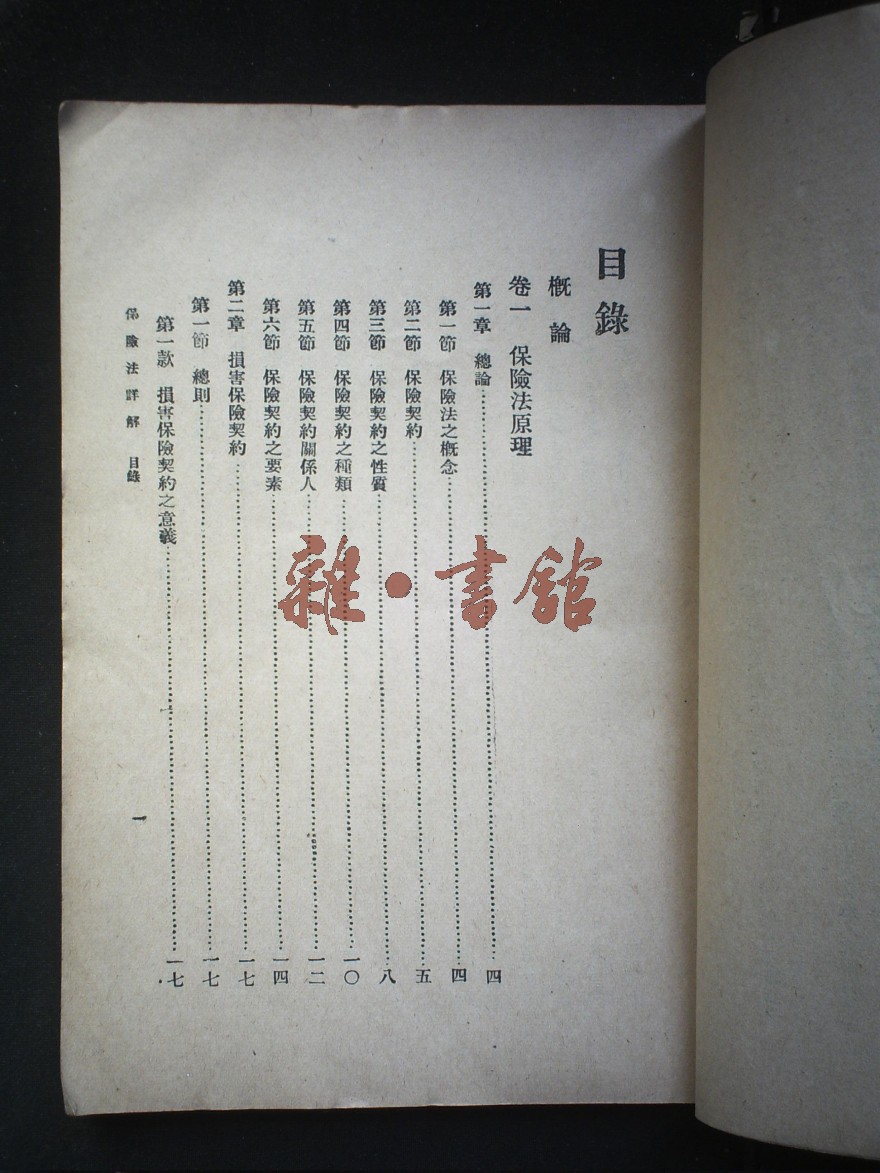 目錄
概論
卷一 保險法原理
第一章 總論……四
第一節 保險法之概念……四
第二節 保險契約……五
第三節 保險契約之性質……八
第四節 保險契約之種類……一〇
第五節 保險契約關係人……一二
第六節 保險契約之要素……一四
第二章 損害保險契約……一七
第一節 總則……一七
第一款 損害保險契約之意義……一七
保險法詳解 目錄 一
雜·書館